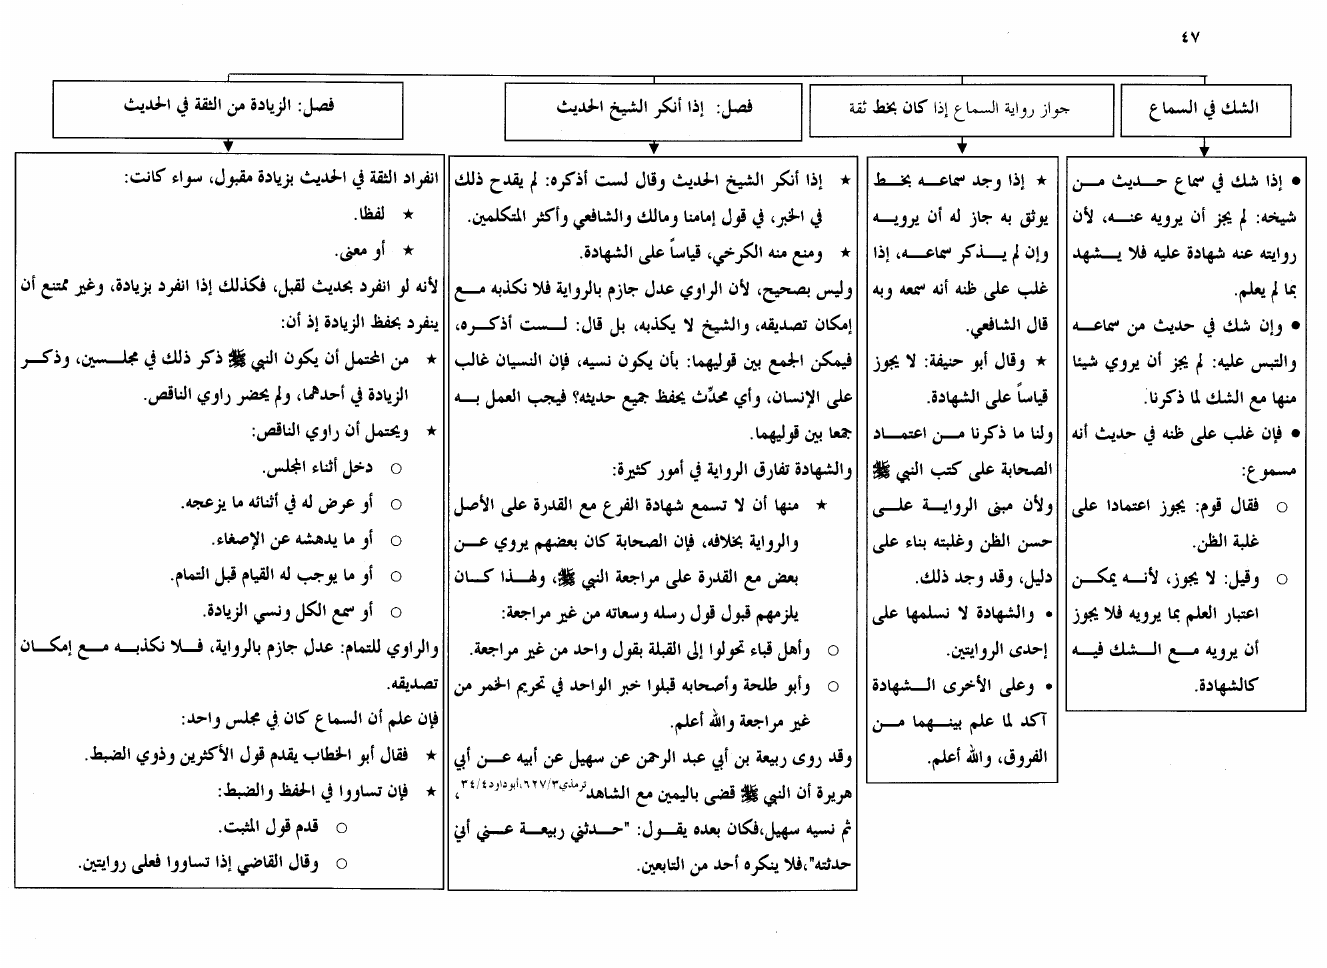 ٤٧
الشك في السماع
• إذا شك في سماع حديث من
شيخه: لم يجز أن يرويه عنه، لأن
روايته عنه شهادة عليه فلا يشهد
بما لم يعلم.
• وإن شك في حديث من سماعه
والتبس عليه: لم يجز أن يروي شيئا
منها مع الشك لما ذكرنا.
• فإن غلب على ظنه في حديث أنه
مسموع:
○ فقال قوم: يجوز اعتمادا على
غلبة الظن.
○ وقيل: لا يجوز، لأنه يمكن
اعتبار العلم بما يرويه فلا يجوز
أن يرويه مع الشك فيه
كالشهادة.
جواز رواية السماع إذا كان بخط ثقة
★ إذا وجد سماعه بخط
يوثق به جاز له أن يرويه
وإن لم يذكر سماعه، إذا
غلب على ظنه أنه سمعه وبه
قال الشافعي.
★ وقال أبو حنيفة: لا يجوز
قياساً على الشهادة.
ولنا ما ذكرنا من اعتماد
الصحابة على كتب النبي ﷺ
ولأن مبنى الرواية على
حسن الظن وغلبته بناء على
دليل، وقد وجد ذلك.
• والشهادة لا نسلمها على
إحدى الروايتين.
• وعلى الأخرى الشهادة
آكد لما علم بينهما من
الفروق، والله أعلم.
فصل: إذا أنكر الشيخ الحديث
★ إذا أنكر الشيخ الحديث وقال لست أذكره: لم يقدح ذلك
في الخبر، في قول إمامنا ومالك والشافعي وأكثر المتكلمين.
★ ومنع منه الكرخي، قياساً على الشهادة.
وليس بصحيح، لأن الراوي عدل جازم بالرواية فلا نكذبه مع
إمكان تصديقه، والشيخ لا يكذبه، بل قال: لست أذكره،
فيمكن الجمع بين قوليهما: بأن يكون نسيه، فإن النسيان غالب
على الإنسان، وأي محدِّث يحفظ جميع حديثه؟ فيجب العمل به
جمعا بين قوليهما.
والشهادة تفارق الرواية في أمور كثيرة:
★ منها أن لا تسمع شهادة الفرع مع القدرة على الأصل
والرواية بخلافه، فإن الصحابة كان بعضهم يروي عن
بعض مع القدرة على مراجعة النبي ﷺ، ولهذا كان
يلزمهم قبول قول رسله وسعاته من غير مراجعة:
○ وأهل قباء تحولوا إلى القبلة بقول واحد من غير مراجعة.
○ وأبو طلحة وأصحابه قبلوا خبر الواحد في تحريم الخمر من
غير مراجعة والله أعلم.
وقد روى ربيعة بن أبي عبد الرحمن عن سهيل عن أبيه عن أبي
هريرة أن النبي ﷺ قضى باليمين مع الشاهد ترمذي٦٢٧/٣،أبوداود٣٤/٤،
ثم نسيه سهيل،فكان بعده يقول: "حدثني ربيعة عني أني
حدثته"،فلا ينكره أحد من التابعين.
فصل: الزيادة من الثقة في الحديث
انفراد الثقة في الحديث بزيادة مقبول، سواء كانت:
★ لفظا.
★ أو معنى.
لأنه لو انفرد بحديث لقبل، فكذلك إذا انفرد بزيادة، وغير ممتنع أن
ينفرد بحفظ الزيادة إذ أن:
★ من المحتمل أن يكون النبي ﷺ ذكر ذلك في مجلسين، وذكر
الزيادة في أحدهما، ولم يحضر راوي الناقص.
★ ويحتمل أن راوي الناقص:
○ دخل أثناء المجلس.
○ أو عرض له في أثنائه ما يزعجه.
○ أو ما يدهشه عن الإصغاء.
○ أو ما يوجب له القيام قبل التمام.
○ أو سمع الكل ونسي الزيادة.
والراوي للتمام: عدل جازم بالرواية، فلا نكذبه مع إمكان
تصديقه.
فإن علم أن السماع كان في مجلس واحد:
★ فقال أبو الخطاب يقدم قول الأكثرين وذوي الضبط.
★ فإن تساووا في الحفظ والضبط:
○ قدم قول المثبت.
○ وقال القاضي إذا تساووا فعلى روايتين.